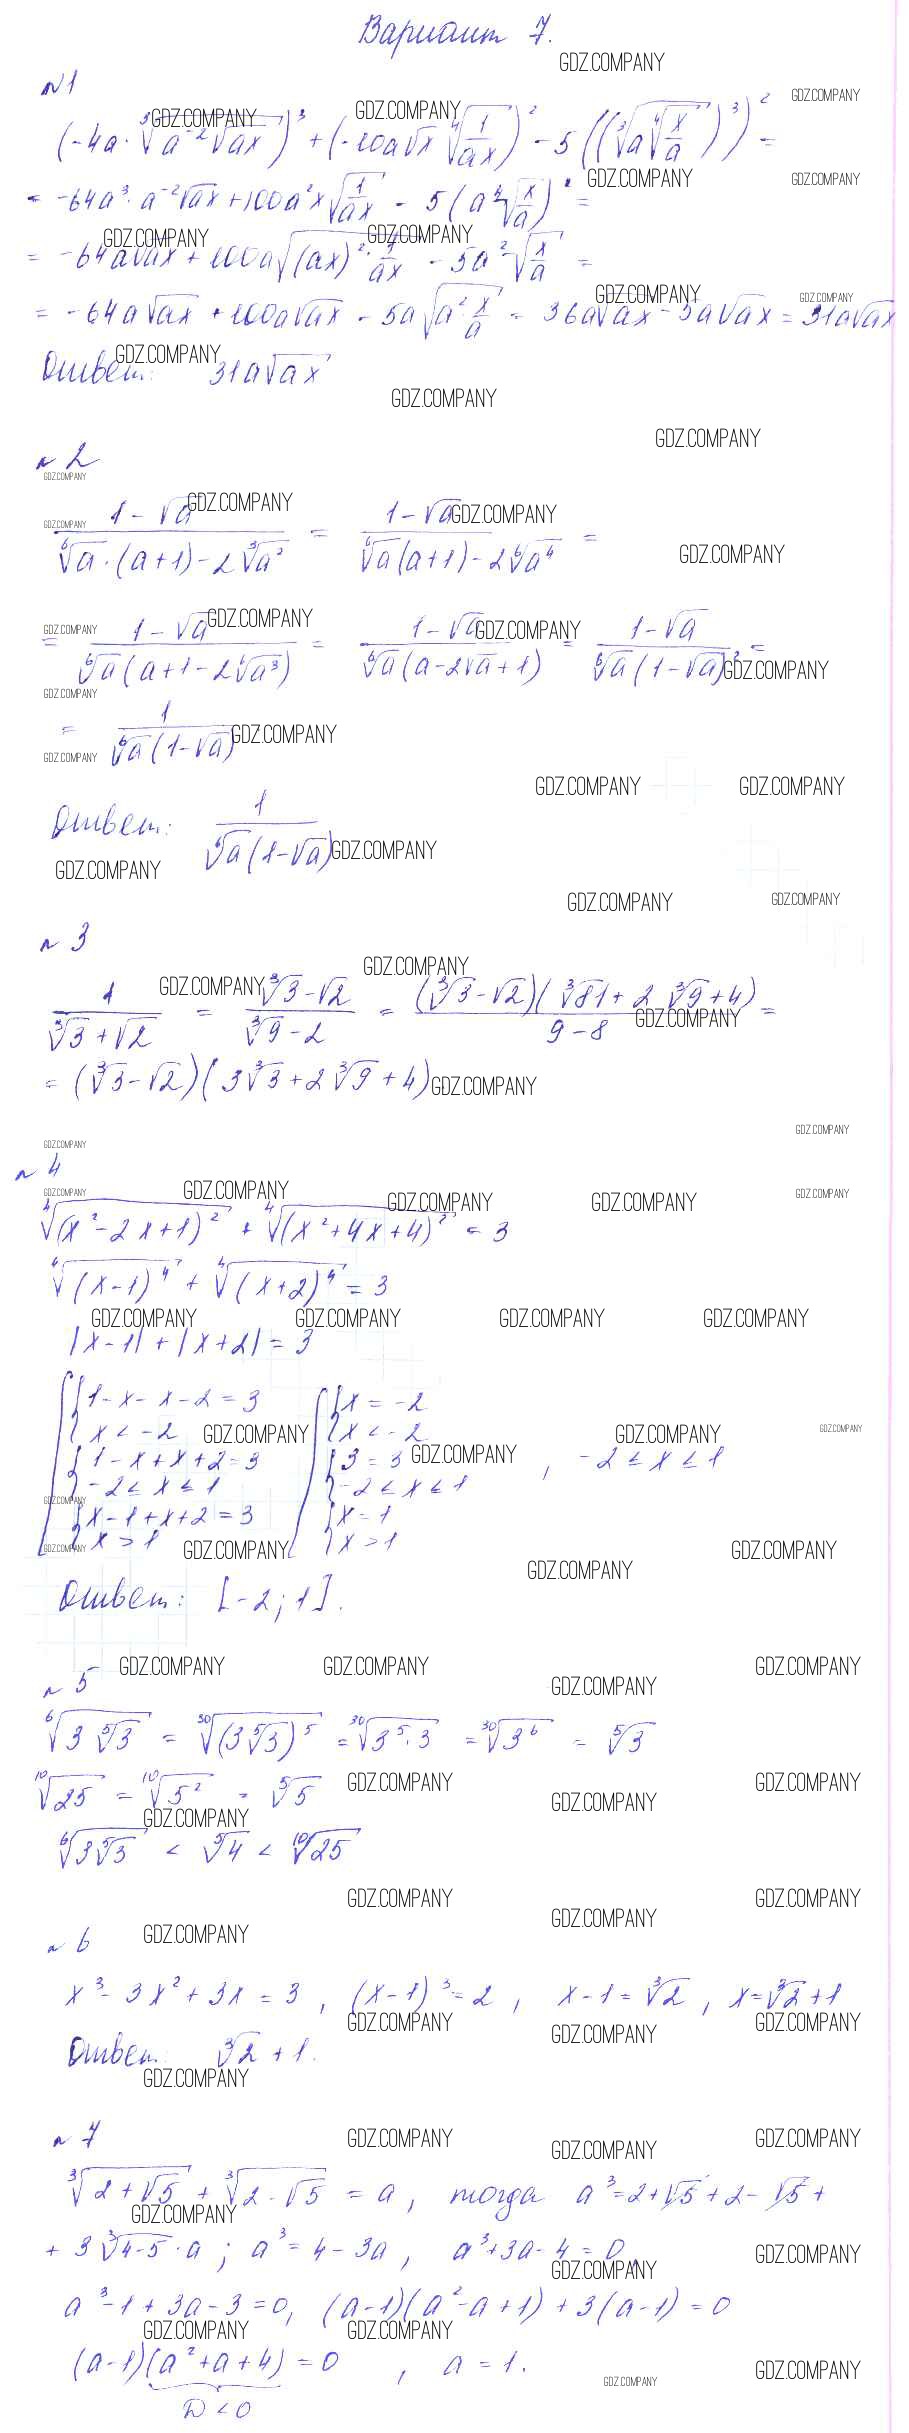 Вариант 7.
n 1
(-4a · ∛(a⁻²√(ax)))³ + (-10a√x ⁴√(1/(ax)))² - 5((∛(a ⁴√(x/a)))³)² =
= -64a³ · a⁻²√(ax) + 100a²x√(1/(ax)) - 5(a ⁴√(x/a))² =
= -64a√(ax) + 100a√((ax)² · 1/(ax)) - 5a²√(x/a) =
= -64a√(ax) + 100a√(ax) - 5a√(a² · x/a) = 36a√(ax) - 5a√(ax) = 31a√(ax)
Ответ: 31a√(ax)
n 2
(1-√a)/(⁶√a · (a+1) - 2∛(a²)) = (1-√a)/(⁶√a (a+1) - 2⁶√(a⁴)) =
= (1-√a)/(⁶√a (a+1-2⁶√(a³))) = (1-√a)/(⁶√a (a-2√a+1)) = (1-√a)/(⁶√a (1-√a)²) =
= 1/(⁶√a (1-√a))
Ответ: 1/(⁶√a (1-√a))
n 3
1/(∛3+√2) = (∛3-√2)/(∛9-2) = ((∛3-√2)(∛81+2∛9+4))/(9-8) =
= (∛3-√2)(3∛3+2∛9+4)
n 4
⁴√((x²-2x+1)²) + ⁴√((x²+4x+4)²) = 3
⁴√((x-1)⁴) + ⁴√((x+2)⁴) = 3
|x-1| + |x+2| = 3
[ { 1-x-x-2=3 [ { x=-2
x<-2 x<-2
{ 1-x+x+2=3 { 3=3 , -2≤x≤1
-2≤x≤1 -2≤x≤1
{ x-1+x+2=3 { x=1
x>1 x>1
Ответ: [-2; 1].
n 5
⁶√(3 ⁵√3) = ³⁰√((3 ⁵√3)⁵) = ³⁰√(3⁵·3) = ³⁰√(3⁶) = ⁵√3
¹⁰√25 = ¹⁰√(5²) = ⁵√5
⁶√(3 ⁵√3) < ⁵√4 < ¹⁰√25
n 6
x³-3x²+3x=3, (x-1)³=2, x-1=∛2, x=∛2+1
Ответ: ∛2+1.
n 7
∛(2+√5) + ∛(2-√5) = a, тогда a³=2+√5+2-√5+
+ 3∛(4-5) · a; a³=4-3a, a³+3a-4=0,
a³-1+3a-3=0, (a-1)(a²-a+1)+3(a-1)=0
(a-1)(a²+a+4)=0, a=1.
D<0